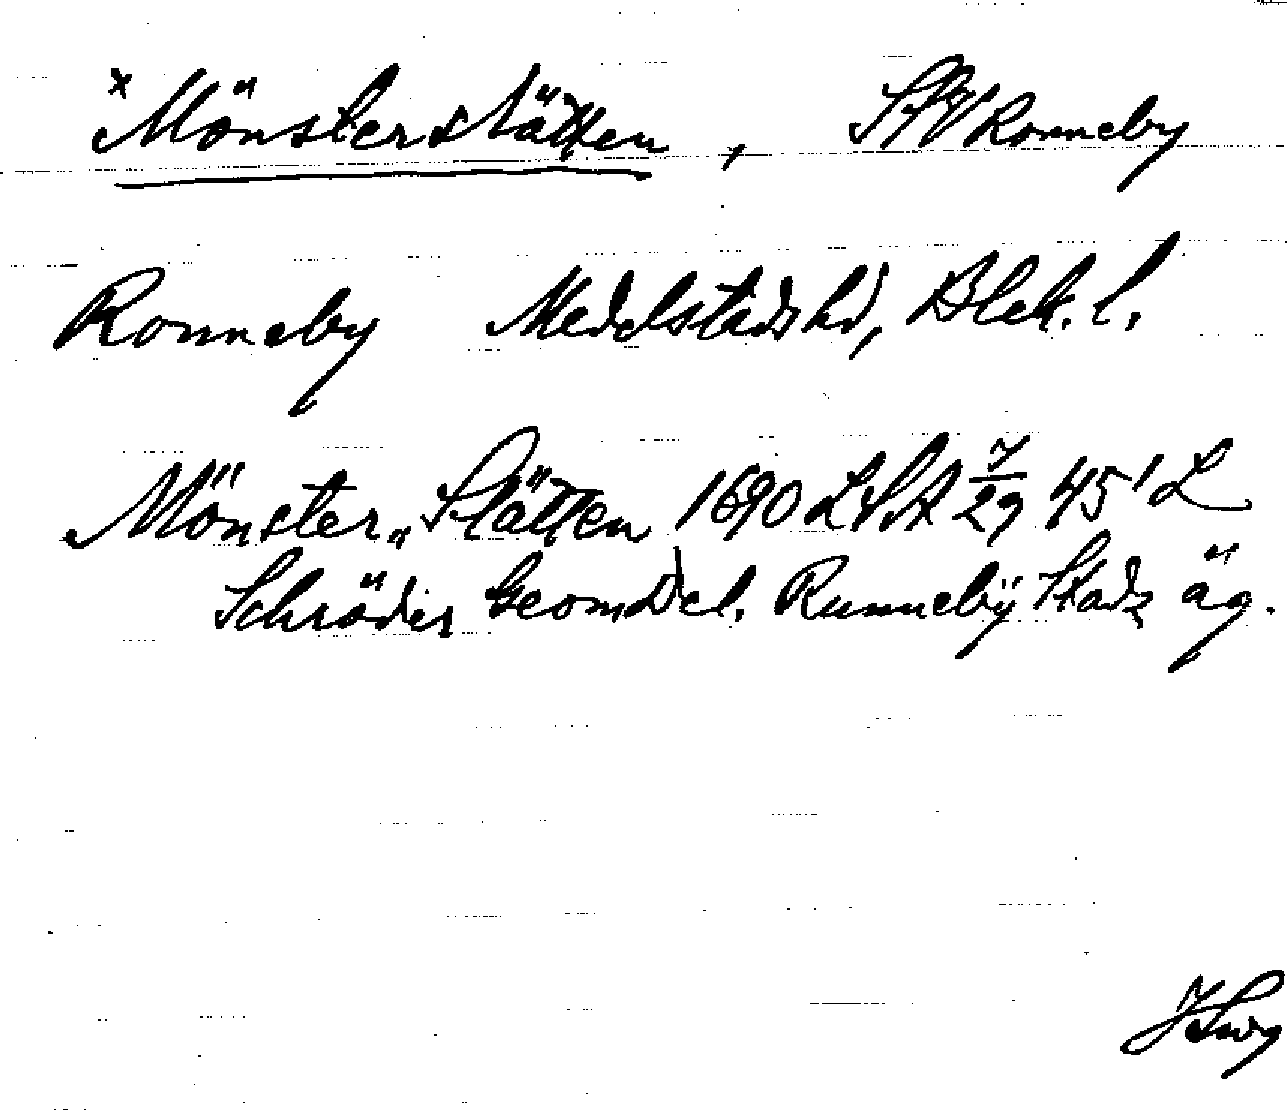 x Mönsterslätten, StfV Ronneby
Ronneby Medelstads hd, Blek. l.
Mönster„Slätten 1690 LSA 7/29 45' L
Schröder Geom Del. Runnebÿ Stadz äg.